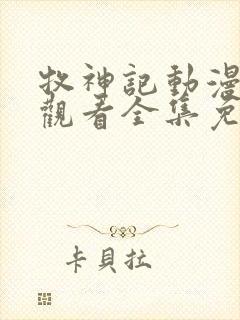 牧神記動漫
觀看全集免
卡貝拉